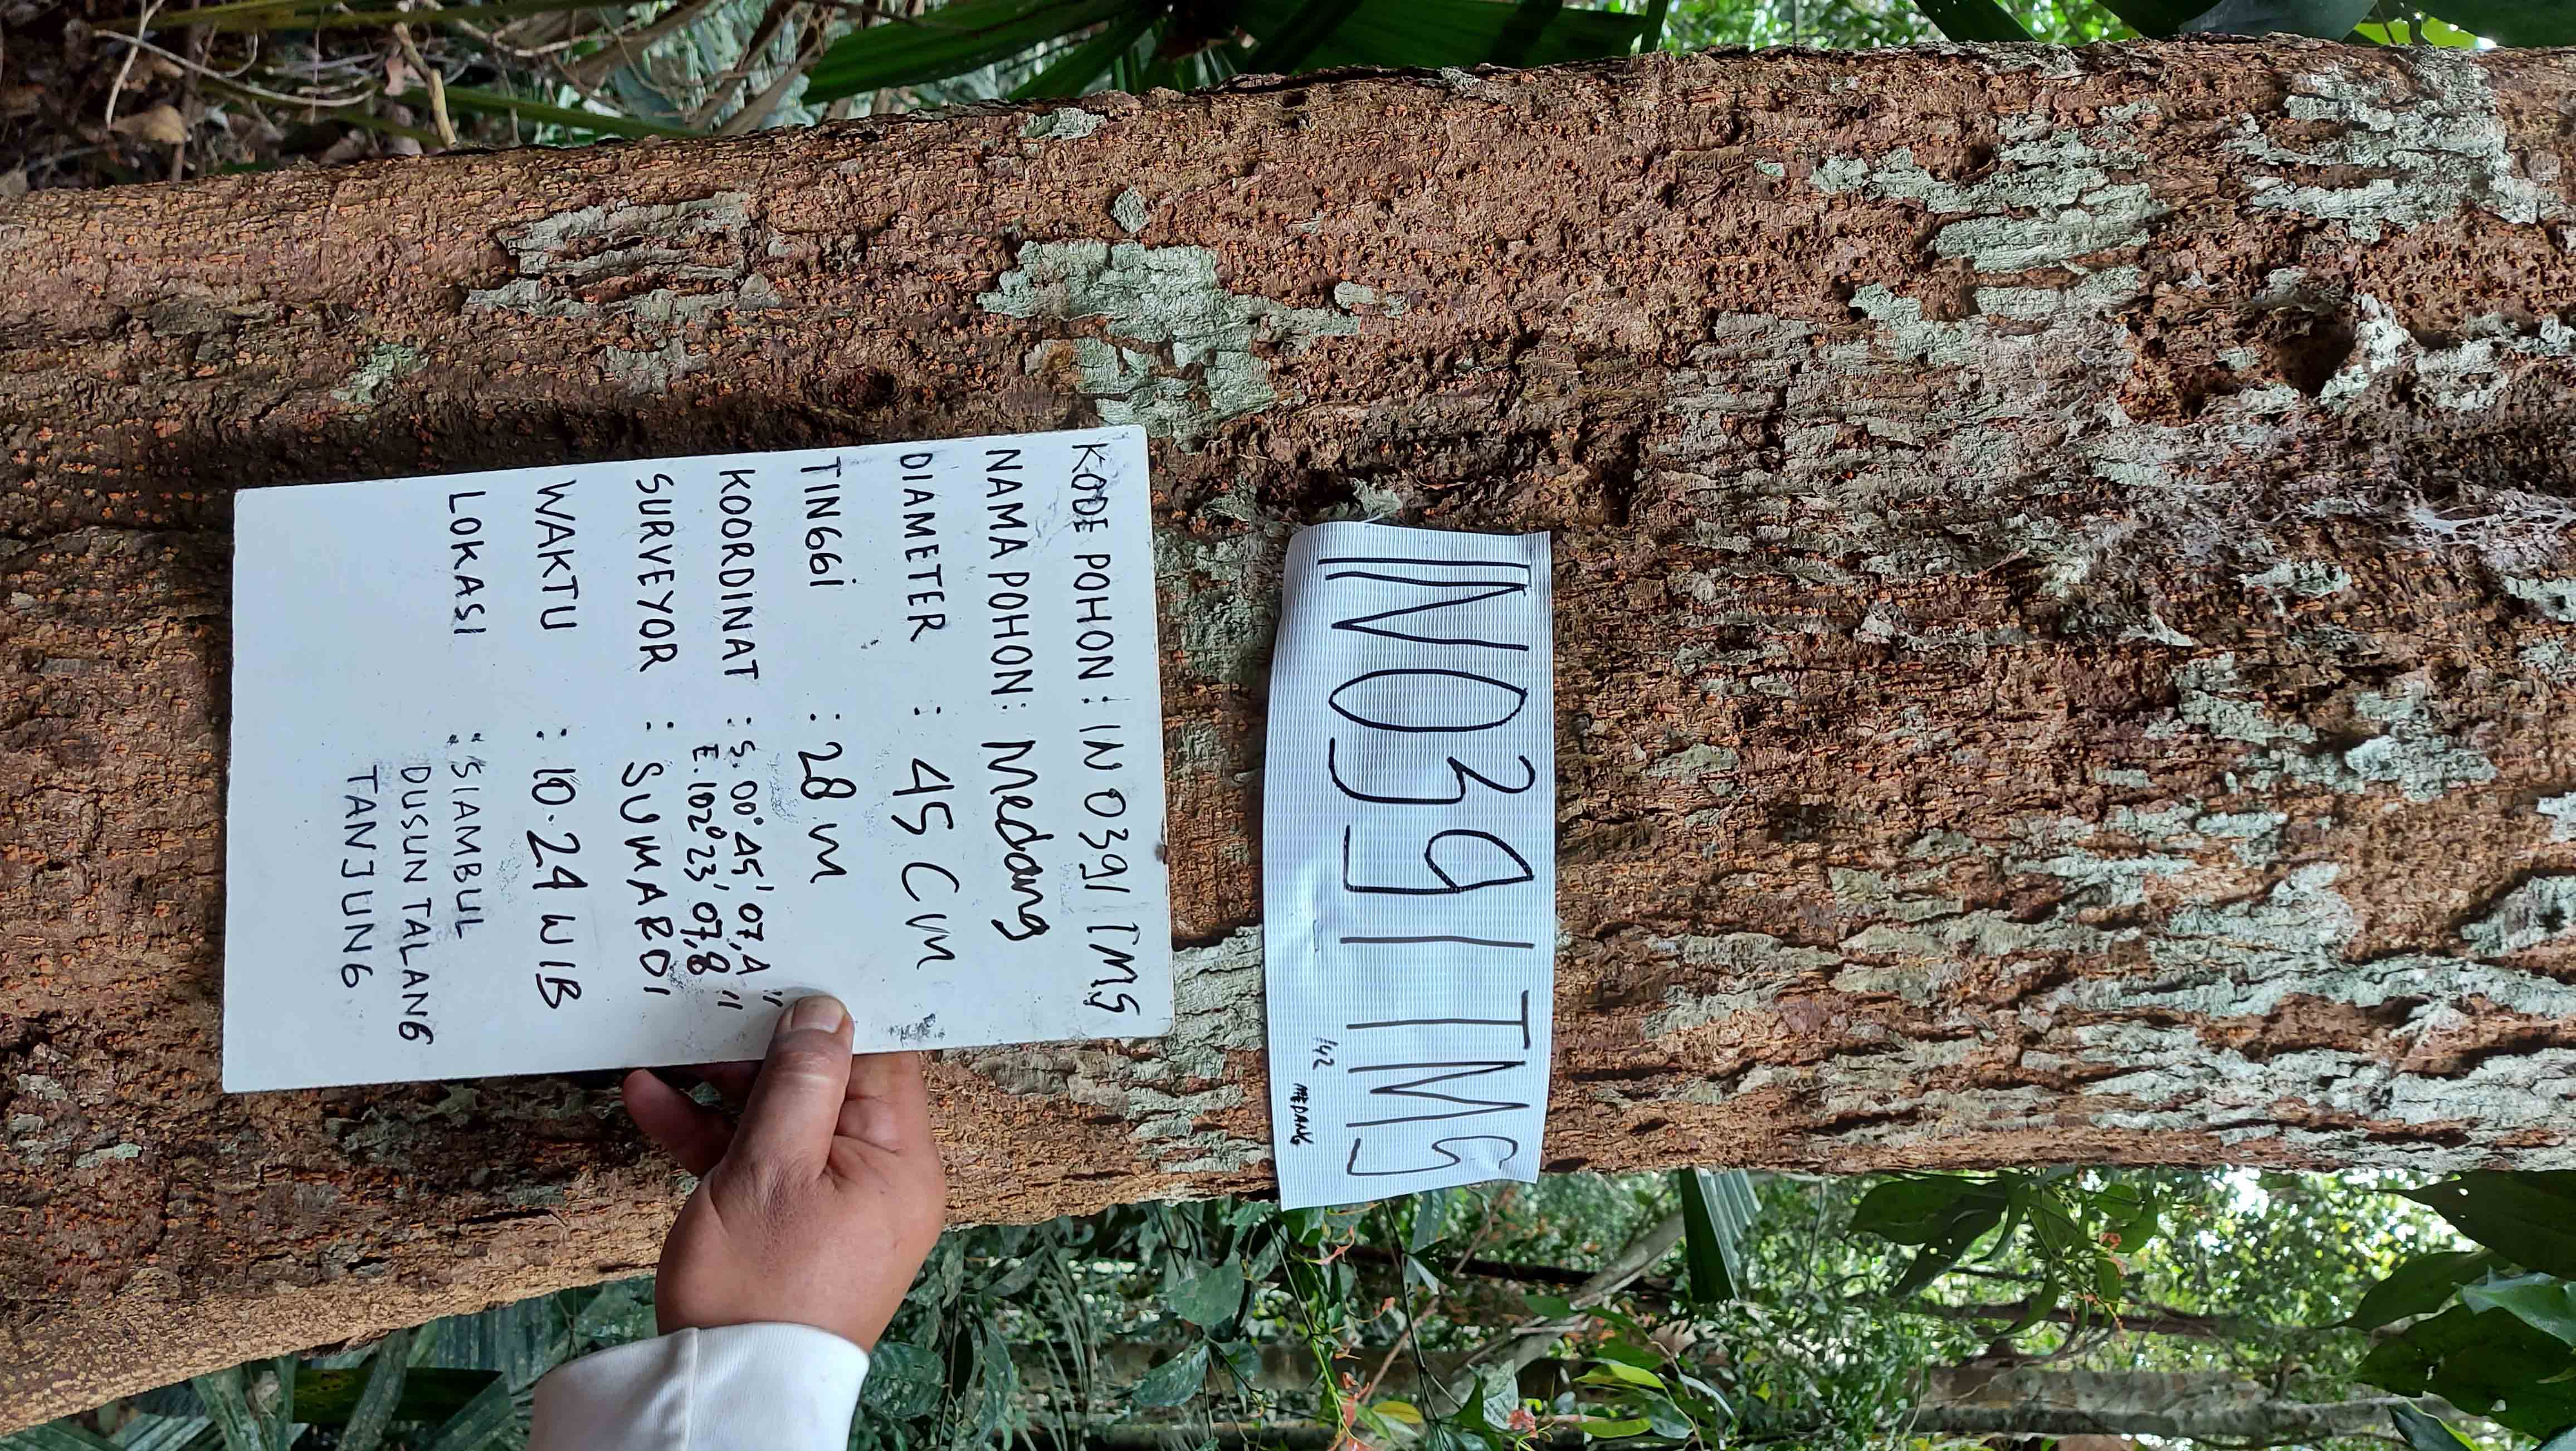 IN0391 TMS
142
MEDANG
KODE POHON : IN 0391 TMS
NAMA POHON : Medang
DIAMETER : 45 Cm
TINGGI : 28 m
KOORDINAT : S. 00° 45' 07,4"
E. 102° 23' 07,8"
SURVEYOR : SUMARDI
WAKTU : 10.24 WIB
LOKASI : SIAMBUL
DUSUN TALANG
TANJUNG